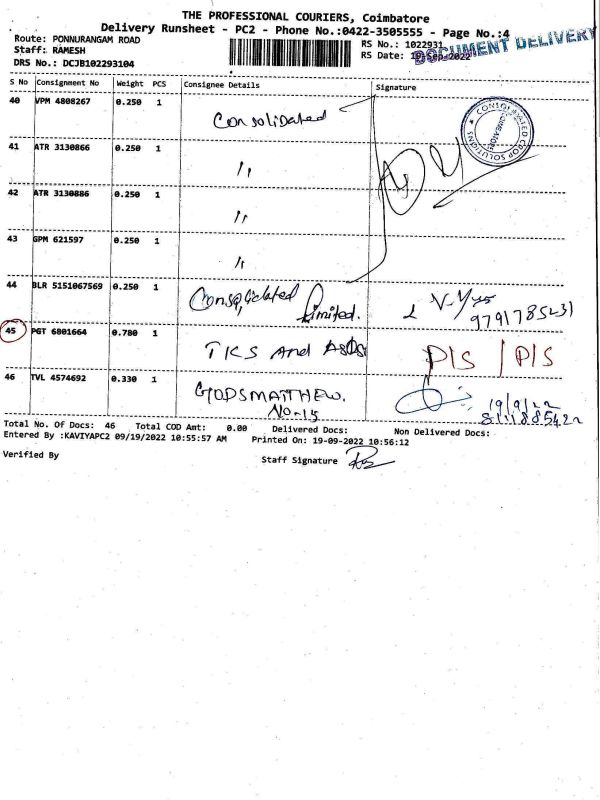 THE PROFESSIONAL COURIERS, Coimbatore
Delivery Runsheet - PC2 - Phone No.:0422-3505555 - Page No.:4
Route: PONNURANGAM ROAD
Staff: RAMESH
DRS No.: DCJB102293104
RS No.: 1022931
RS Date: 19-Sep-2022
DOCUMENT DELIVERY
S No Consignment No Weight PCS Consignee Details Signature
40 VPM 4808267 0.250 1 Consolidated
CONSOLIDATED CORP SOLUTIONS
41 ATR 3130866 0.250 1 "
42 ATR 3130886 0.250 1 "
43 GPM 621597 0.250 1 "
44 BLR 5151067569 0.250 1 Consolidated Limited.
45 PGT 6801664 0.780 1 TKS and P/S / P/S
46 TVL 4574692 0.330 1 GODSMATTHEW.
No-15
19/9/22
Total No. Of Docs: 46 Total COD Amt: 0.00 Delivered Docs: Non Delivered Docs:
Entered By :KAVIYAPC2 09/19/2022 10:55:57 AM Printed On: 19-09-2022 10:56:12
Verified By
Staff Signature